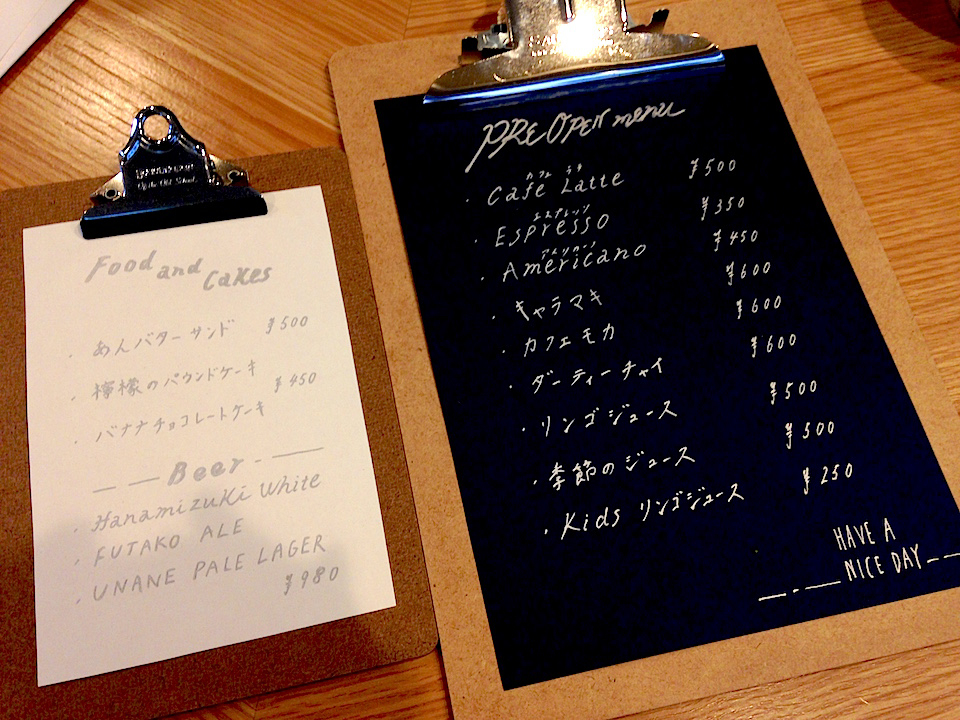 Food and Cakes
・あんバターサンド ¥500
・檸檬のパウンドケーキ ¥450
・バナナチョコレートケーキ
Beer
・Hanamizuki White
・FUTAKO ALE
・UNANE PALE LAGER
¥980
PREOPEN menu
カフェ ラテ
・Cafe Latte ¥500
エスプレッソ
・Espresso ¥350
アメリカーノ
・Americano ¥450
・キャラマキ ¥600
・カフェモカ ¥600
・ダーティーチャイ ¥600
・リンゴジュース ¥500
・季節のジュース ¥500
・Kids リンゴジュース ¥250
HAVE A
NICE DAY